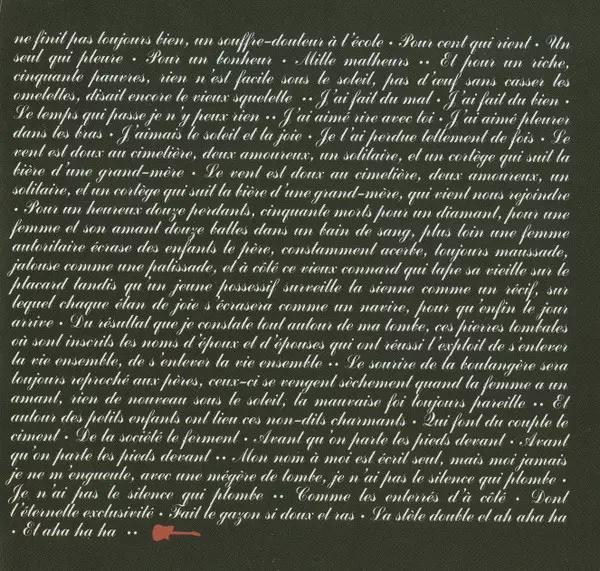 ne finit pas toujours bien, un souffre-douleur à l'école · Pour cent qui rient · Un
seul qui pleure · Pour un bonheur · Mille malheurs ·· Et pour un riche,
cinquante pauvres, rien n'est facile sous le soleil, pas d'œuf sans casser les
omelettes, disait encore le vieux squelette ·· J'ai fait du mal · J'ai fait du bien ·
Le temps qui passe je n'y peux rien ·· J'ai aimé rire avec toi · J'ai aimé pleurer
dans les bras · J'aimais le soleil et la joie · Je l'ai perdue tellement de fois · Le
vent est doux au cimetière, deux amoureux, un solitaire, et un cortège qui suit la
bière d'une grand-mère · Le vent est doux au cimetière, deux amoureux, un
solitaire, et un cortège qui suit la bière d'une grand-mère, qui vient nous rejoindre
· Pour un heureux douze perdants, cinquante morts pour un diamant, pour une
femme et son amant douze balles dans un bain de sang, plus loin une femme
autoritaire écrase des enfants le père, constamment acerbe, toujours maussade,
jalouse comme une palissade, et à côté ce vieux connard qui tape sa vieille sur le
placard tandis qu'un jeune possessif surveille la sienne comme un récif, sur
lequel chaque élan de joie s'écrasera comme un navire, pour qu'enfin le jour
arrive · Du résultat que je constate tout autour de ma tombe, ces pierres tombales
où sont inscrits les noms d'époux et d'épouses qui ont réussi l'exploit de s'enlever
la vie ensemble, de s'enlever la vie ensemble ·· Le sourire de la boulangère sera
toujours reproché aux pères, ceux-ci se vengent sèchement quand la femme a un
amant, rien de nouveau sous le soleil, la mauvaise foi toujours pareille ·· Et
autour des petits enfants ont lieu ces non-dits charmants · Qui font du couple le
ciment · De la société le ferment · Avant qu'on parte les pieds devant · Avant
qu'on parte les pieds devant ·· Mon nom à moi est écrit seul, mais moi jamais
je ne m'engueule, avec une mégère de tombe, je n'ai pas le silence qui plombe ·
Je n'ai pas le silence qui plombe ·· Comme les enterrés d'à côté · Dont
l'éternelle exclusivité · Fait le gazon si doux et ras · La stèle double et ah aha ha
· Et aha ha ha ··